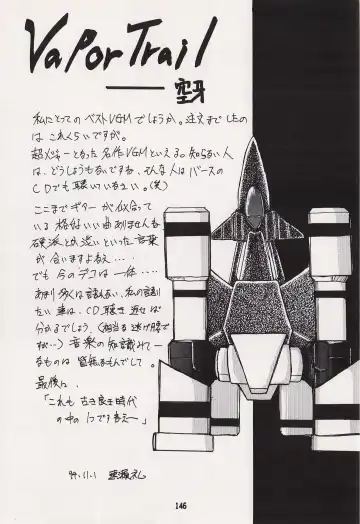 Vapor Trail
空牙
私にとってのベストVGMでしょうか。注文までしたの
はこれくらいですが。
超メジャーとかった名作VGMといえる。知らない人
は、どうしようもないですね、そんな人はバースの
CDでも聴いていなさい。(笑)
ここまでギターが似合って
いる格好いい曲ありませんね
硬派とか渋いといった言葉
が合いますよねえ・・・
でも今のデコは一体・・・・
あまり多くは語れない、私の語り
たい事は、CD聴き返せば
分かるでしょう、(相当逃げ腰で
すが…)音楽の知識みてー
なものは皆無なもんでして。
最後に、
「これも古き良き時代
の中の1つですねえ〜」
94.11.1
146